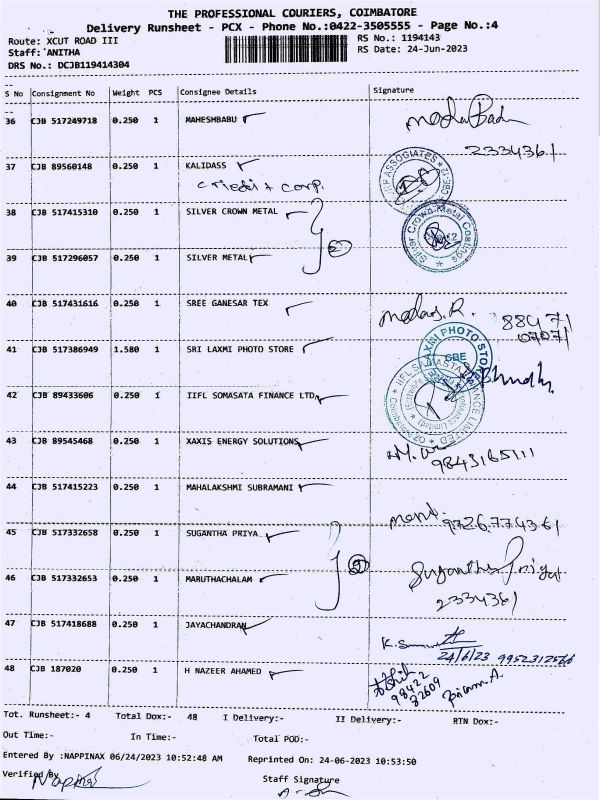 THE PROFESSIONAL COURIERS, COIMBATORE
Delivery Runsheet - PCX - Phone No.:0422-3505555 - Page No.:4
Route: XCUT ROAD III RS No.: 1194143
Staff: ANITHA RS Date: 24-Jun-2023
DRS No.: DCJB119414304
S No Consignment No Weight PCS Consignee Details Signature
36 CJB 517249718 0.250 1 MAHESHBABU
2334361
37 CJB 89560148 0.250 1 KALIDASS
ASSOCIATES
38 CJB 517415310 0.250 1 SILVER CROWN METAL
Silver Crown Metal Coatings
39 CJB 517296057 0.250 1 SILVER METAL
40 CJB 517431616 0.250 1 SREE GANESAR TEX
41 CJB 517386949 1.580 1 SRI LAXMI PHOTO STORE
CBE
42 CJB 89433606 0.250 1 IIFL SOMASATA FINANCE LTD
43 CJB 89545468 0.250 1 XAXIS ENERGY SOLUTIONS
9843165111
44 CJB 517415223 0.250 1 MAHALAKSHMI SUBRAMANI
45 CJB 517332658 0.250 1 SUGANTHA PRIYA
46 CJB 517332653 0.250 1 MARUTHACHALAM
Sugantha Priya
2334361
47 CJB 517418688 0.250 1 JAYACHANDRAN
24/6/23
48 CJB 187020 0.250 1 H NAZEER AHAMED
98422
82609
Tot. Runsheet:- 4 Total Dox:- 48 I Delivery:- II Delivery:- RTN Dox:-
Out Time:- In Time:- Total POD:-
Entered By :NAPPINAX 06/24/2023 10:52:48 AM Reprinted On: 24-06-2023 10:53:50
Verified By Staff Signature